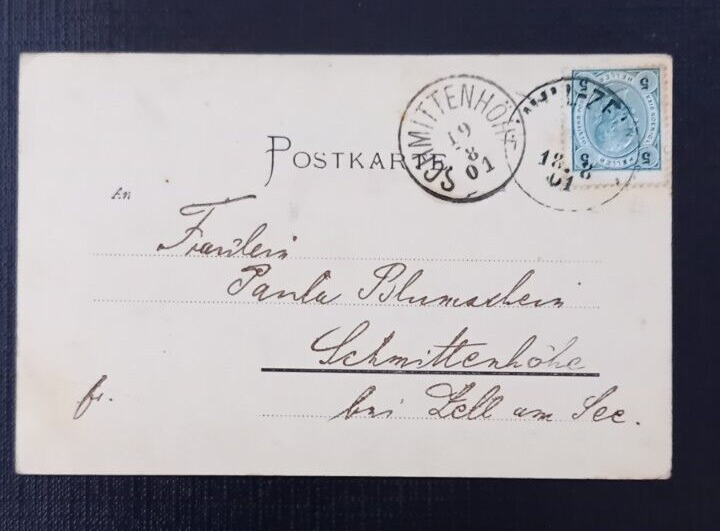 POSTKARTE
SCHMITTENHÖHE
19
8
01
18 8
01
5
5
5
5
An
Fräulein
Paula Blumschein
Schmittenhöhe
bei Zell am See.
fr.